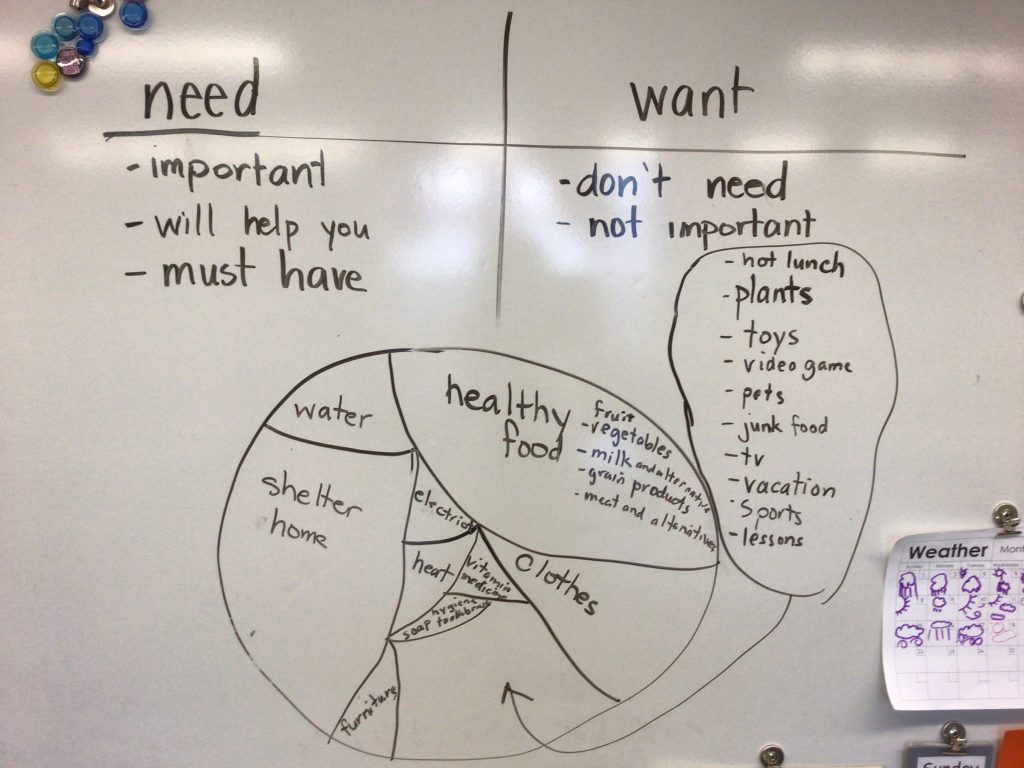 need
- important
- will help you
- must have
want
- don't need
- not important
- hot lunch
- plants
- toys
- video game
- pets
- junk food
- tv
- vacation
- sports
- lessons
water
healthy
food
fruit
- vegetables
- milk and alternatives
- grain products
- meat and alternatives
shelter
home
electric
heat
vitamin
medicine
hygiene
soap toothbrush
clothes
furniture
Weather
Mont
Sunday